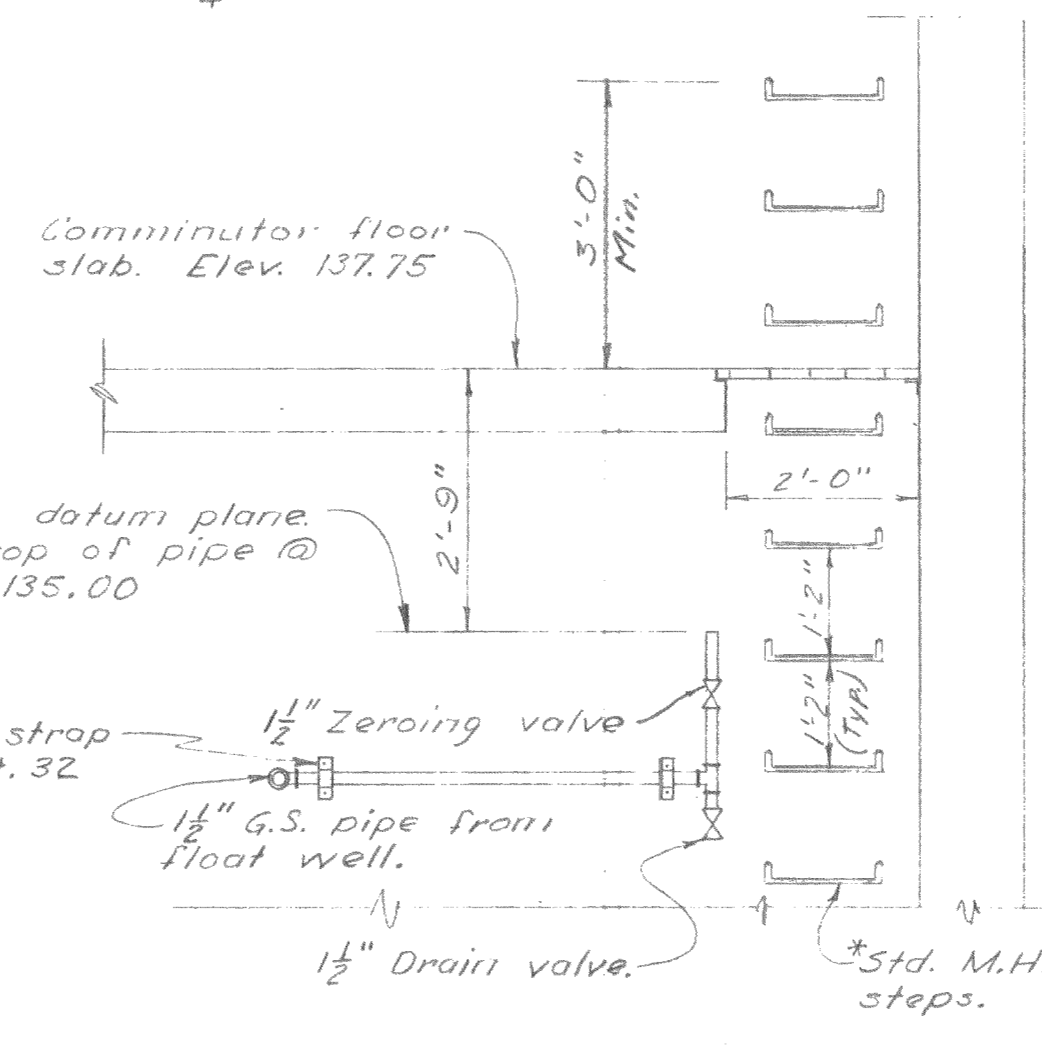 3'-0"
Min.
Comminutor floor
slab. Elev. 137.75
2'-9"
2'-0"
datum plane.
top of pipe @
135.00
1'-2"
1'-2"
(TYP.)
strap
t. 32
1½" Zeroing valve
1½" G.S. pipe from
float well.
1½" Drain valve.
*Std. M.H.
steps.